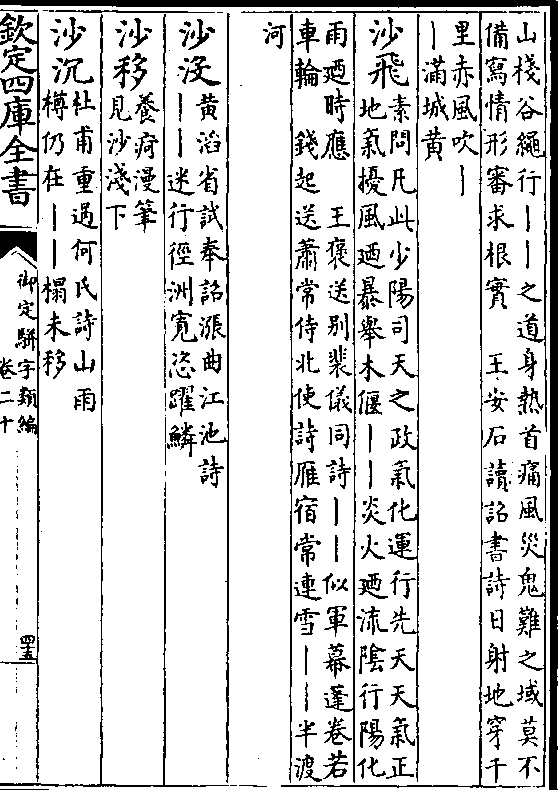 山棧谷繩行｜｜之道身熱首痛風災鬼難之域莫不
備寫情形審求根實　王安石讀詔書詩日射地穿千
里赤風吹｜
｜滿城黄
沙飛
素問凡此少陽司天之政氣化運行先天天氣正
地氣擾風廼暴舉木偃｜｜炎火廼流陰行陽化
雨廼時應　王褒送别裴儀同詩｜｜似軍幕蓬卷若
車輪　錢起送蕭常侍北使詩雁宿常連雪｜｜半渡
河
沙没
黄滔省試奉詔漲曲江池詩
｜｜迷行徑洲寛恣躍鱗
沙移
養疴漫筆
見沙淺下
沙沉
杜甫重過何氏詩山雨
樽仍在｜｜榻未移
欽定四庫全書
御定駢字類編
卷二十
四五